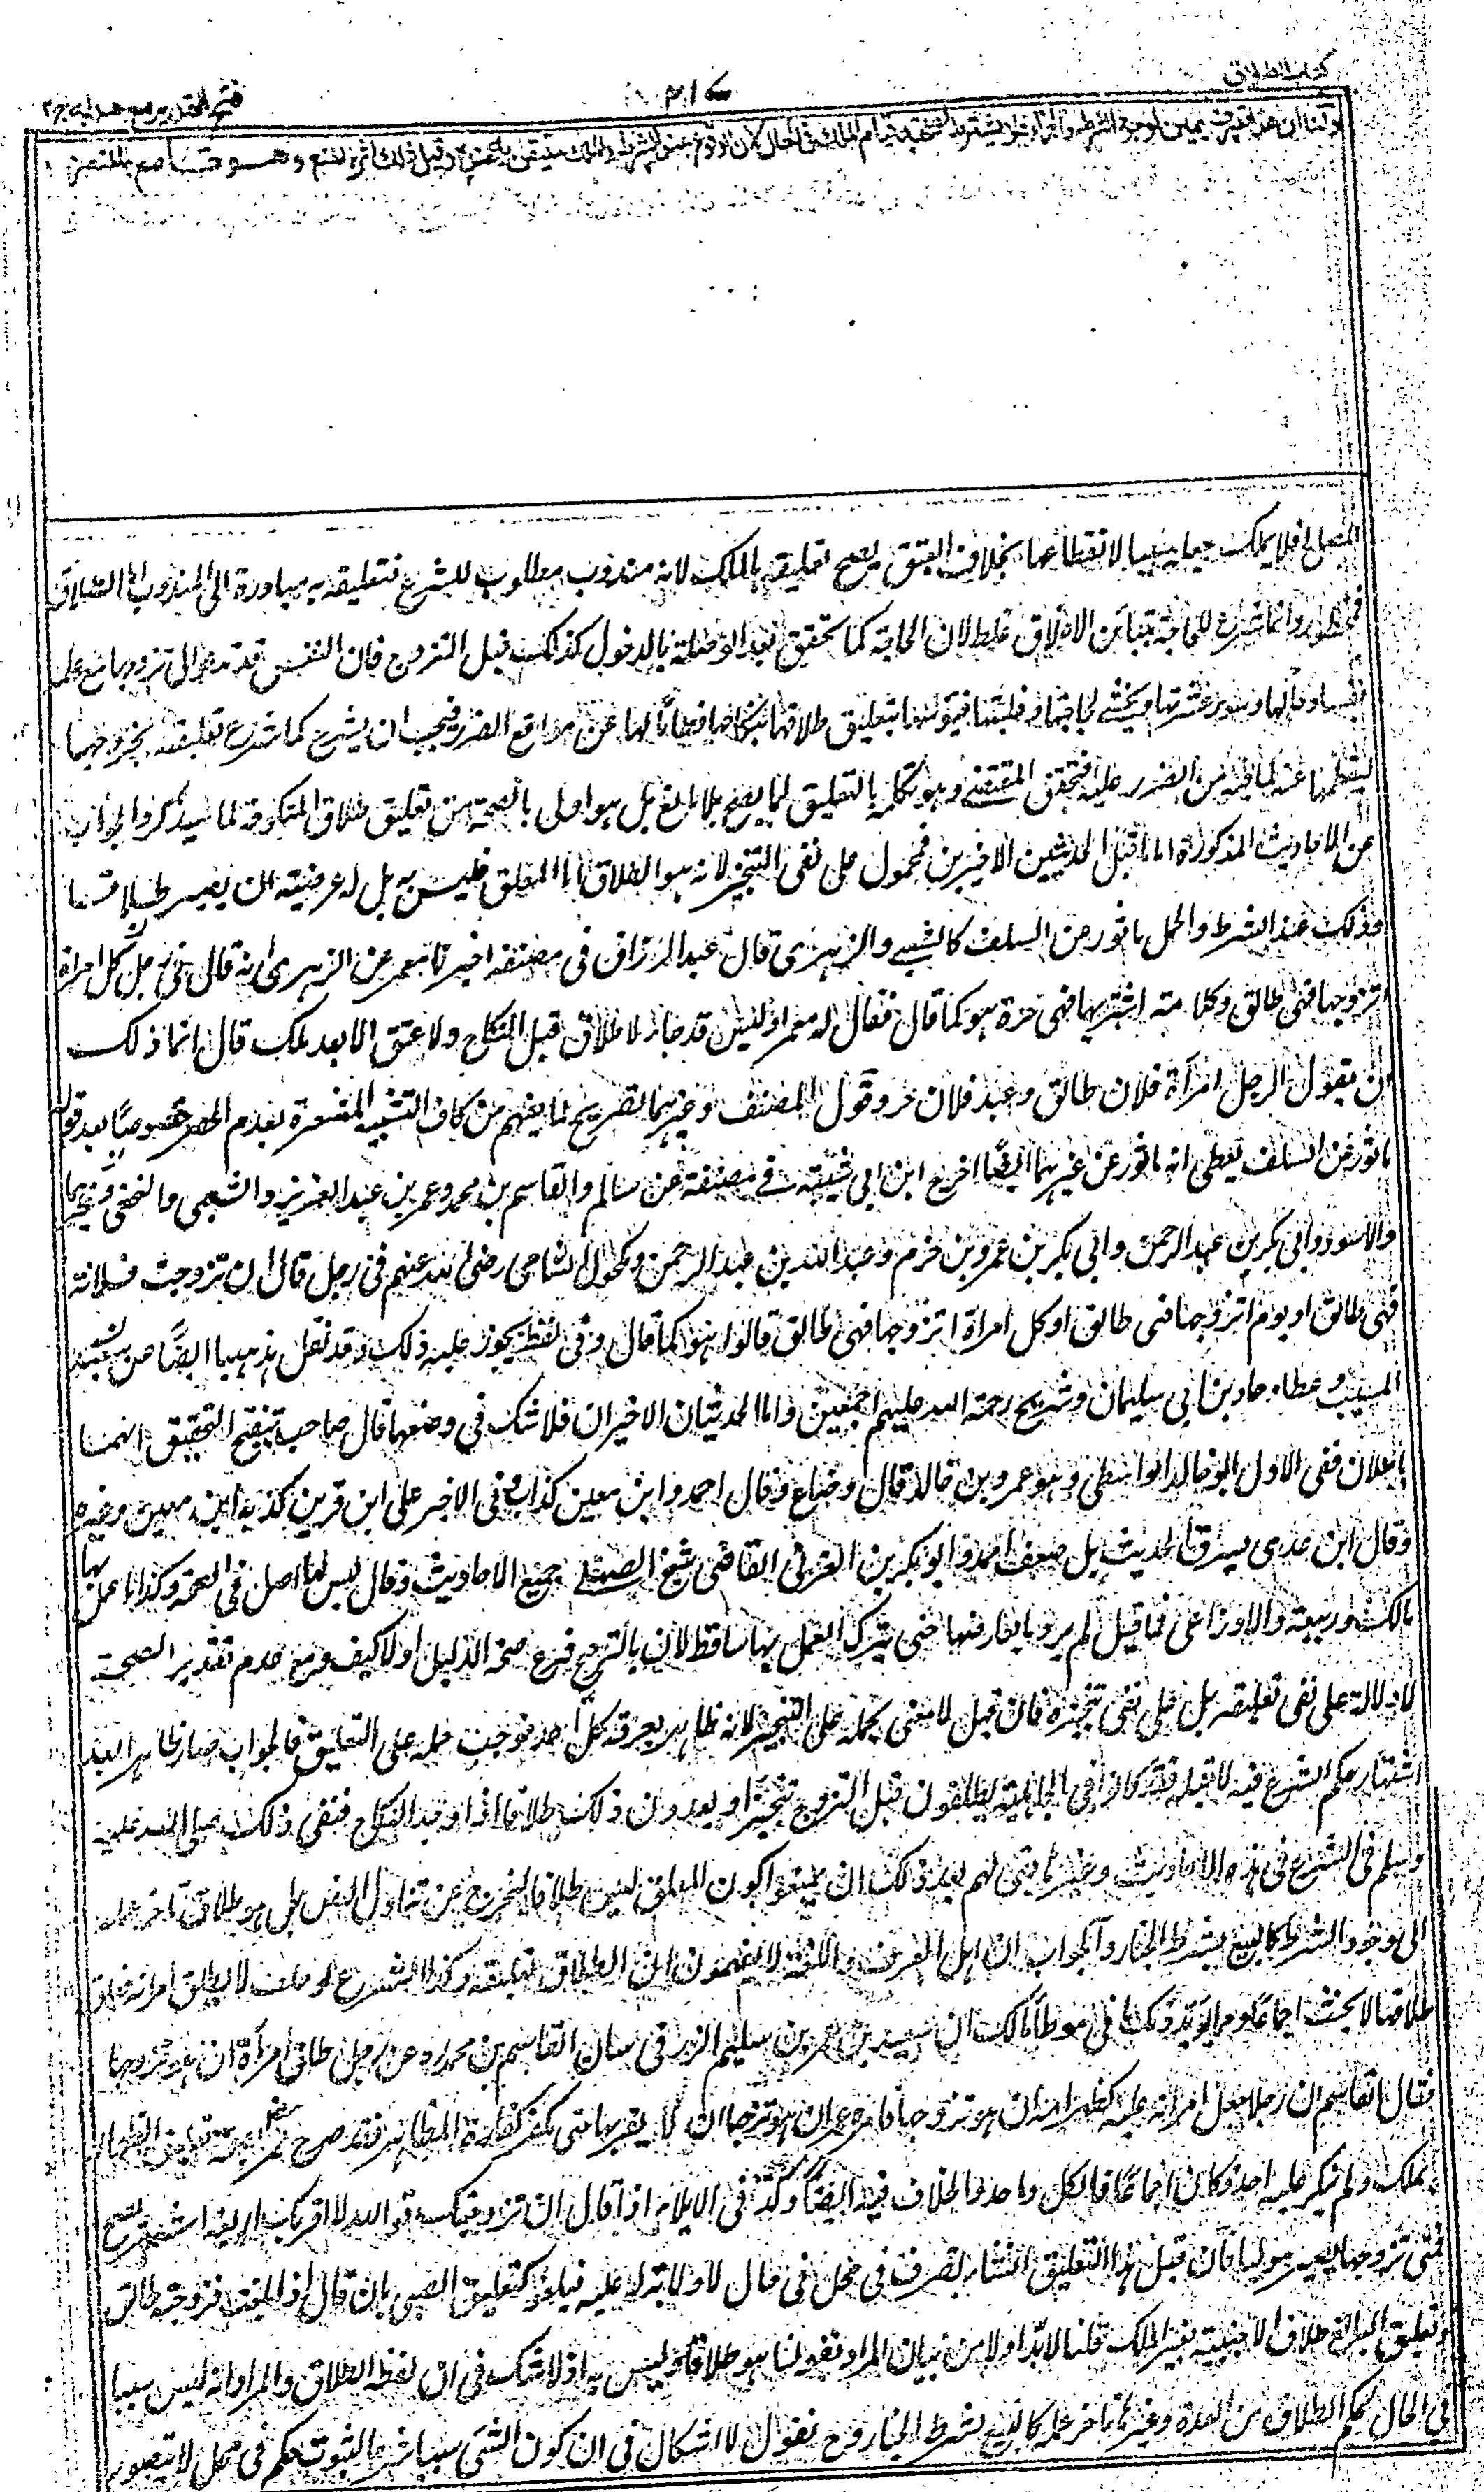 كتاب الطلاق
٢١٧
فتح القدير مع هداية ج ٢
ولنا ان هذا تصرف يمين لوجود الشرط والجزاء فلا يشترط لصحته قيام الملك فى الحال لان الوقوع عند الشرط والملك متيقن به عنده وقبل ذلك اثره المنع وهو قائم بالمتصرف
المصالح فلا يملك جعله سببا لانقطاعها بخلاف العتق يصح تعليقه بالملك لانه مندوب مطلوب للشرع فتعليقه به مبادرة الى المندوب اما الطلاق
فمحظور وانما شرع للحاجة بتباين الاخلاق غلط لان الحاجة كما تتحقق بعد الوصلة بالدخول كذلك قبل التزوج فان النفس قد تدعو الى تزوجها مع علمه
بفسادها وسوء عشرتها ويخشى لجاجتها وغلبتها فيؤيسها بتعليق طلاقها بنكاحها فطاما لها عن مواقع الضرر فيجب ان يشرع كما شرع تعليقه بخروجها
ليفطمها عنه لما فيه من الضرر عليه فتحقق المقتضى وهو تكلمه بالتعليق لما يصح بلا مانع بل هو اولى بالصحة من تعليق طلاق المنكوحة لما سيذكر والجواب
عن الاحاديث المذكورة اما ما قبل الحديثين الاخيرين فمحمول على نفى التنجيز لانه هو الطلاق اما المعلق فليس به بل له عرضية ان يصير طلاقا
وذلك عند الشرط والحمل ماثور عن السلف كالشعبى والزهرى قال عبد الرزاق فى مصنفه اخبرنا معمر عن الزهرى انه قال فى رجل قال كل امراة
اتزوجها فهى طالق وكل امة اشتريها فهى حرة هو كما قال فقال له معمر او ليس قد جاء لا طلاق قبل النكاح ولا عتق الا بعد ملك قال انما ذلك
ان يقول الرجل امرأة فلان طالق وعبد فلان حر وقول المصنف وغيرهما تصريح لما يفهم من كاف التشبيه المشعرة بعدم الحصر خصوصا بعد قوله
ماثور عن السلف يعطى انه ماثور عن غيرهما ايضا اخرج ابن ابى شيبة فى مصنفه عن سالم والقاسم بن محمد وعمر بن عبد العزيز والشعبى والنخعى والزهرى
والاسود وابى بكر بن عبد الرحمن وابى بكر بن عمرو بن حزم وعبد الله بن عبد الرحمن ومكحول الشامى رضى الله عنهم فى رجل قال ان تزوجت فلانة
فهى طالق او يوم اتزوجها فهى طالق او كل امراة اتزوجها فهى طالق قالوا هو كما قال وفى لفظ يجوز عليه ذلك وقد نقل مذهبنا ايضا عن سعيد بن
المسيب وعطاء وحماد بن ابى سليمان وشريح رحمة الله عليهم اجمعين واما الحديثان الاخيران فلا شك فى وضعهما قال صاحب تنقيح التحقيق انهما
باطلان ففى الاول ابو خالد الواسطى وهو عمرو بن خالد قال وضاع وقال احمد وابن معين كذاب وفى الاخير على ابن قرين كذبه ابن معين وغيره
وقال ابن عدى يسرق الحديث بل ضعف احمد وابو بكر بن العربى القاضى شيخ السهيلى جميع الاحاديث وقال ليس لها اصل فى الصحة وكذا ما عمل بها
مالك وربيعة والاوزاعى فما قيل لم يرو ما يعارضها حتى يترك العمل بها ساقط لان الترجيح فرع صحة الدليل اولا كيف ومع عدم تقدير الصحة
لا دلالة على نفى تعليقه بل على نفى تنجيزه فان قيل لا معنى لحمله على التنجيز لانه ظاهر يعرفه كل احد فوجب حمله على التعليق فالجواب صار ظاهرا بعد
اشتهار حكم الشرع فيه لا قبله فقد كانوا فى الجاهلية يطلقون قبل التزوج تنجيزا ويعدون ذلك طلاقا اذا وجد النكاح فنفى ذلك صلى الله عليه
وسلم فى الشرع فى هذه الاحاديث وغيرها بقى لهم بعد ذلك ان يمنعوا كون المعلق ليس طلاقا ليخرج عن تناول النص بل هو طلاق تأخر عمله
الى وجود الشرط كالبيع بشرط الخيار والجواب ان اهل العرف واللغة لا يفهمون من الطلاق تعليقه وكذا الشرع لو حلف لا يطلق امراته فعلق
طلاقها لا يحنث اجماعا ومما يؤيد ذلك ما فى موطأ مالك ان سعيد بن عمر بن سليم الزرقى سال القاسم بن محمد عن رجل طلق امرأة ان هو تزوجها
فقال القاسم ان رجلا جعل امراته عليه كظهر امه ان هو تزوجها فامره عمر ان هو تزوجها ان لا يقربها حتى يكفر كفارة المظاهر فقد صرح عمر بصحة تعليق الظهار
بالملك ولم ينكر عليه احد فكان اجماعا فالكل واحد والخلاف فيه ايضا وكذا فى الايلاء اذا قال ان تزوجتك فوالله لا اقربك اربعة اشهر يصح
فمتى تزوجها يصير موليا فان قيل هذا التعليق انشاء تصرف فى محل فى حال لا ولاية له عليه فيلغو كتعليق الصبى بان قال اذا بلغت فزوجته طالق
وتعليق البالغ طلاق الاجنبية بغير الملك قلنا لا بد اولا من بيان المراد بقولنا هو طلاق او ليس به اذ لا شك فى ان لفظ الطلاق والمراد انه ليس سببا
فى الحال لحكم الطلاق من العدة وغيرها تاخر عمله كالبيع بشرط الخيار وح نقول لا اشكال فى ان كون الشئ سببا شرعا لثبوت حكم فى محل لا يتصور